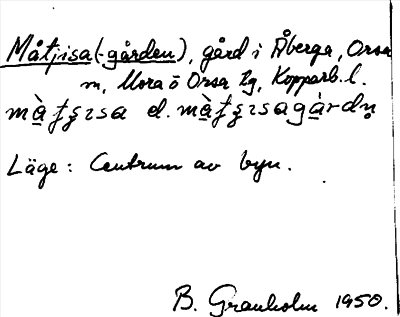 Måtjisa (-gården), gård i Åberga, Orsa
m, Mora o Orsa tg, Kopparb. l.
màţʂɪsa el. màţʂɪsagàrdṇ
Läge: Centrum av byn.
B. Granholm 1950.